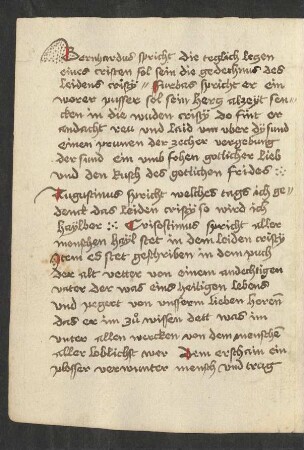 Bernhardus spricht die teglich legen
eines cristen sol sein die gedechtnus des
leidens cristy Furbas spricht er ein
worer pusser sol sein herg alzeyt sen-
cken in die wuden cristy do fint er
andacht reu und laid um ober dy sund
einen prunen der zecher vergebung
der sund ein umb fohen gotlicher lieb
und den kusch des gotlichen frides
Augustinus spricht welches tags ich ge
denck das leiden cristy so wird ich
haylber Crisostimus spricht aller
menschen hayl stet in dem leiden cristy
Item es stet geschriben in dem puch
der alt vetter von einem andechtigen
vater der was eins heiligen lebens
und pegert von unserm lieben heren
das er im zu wissen dett was im
unter allen wercken von dem menschen
aller loblichst wer Dem erschain ein
plosser verwunter mensch und trug